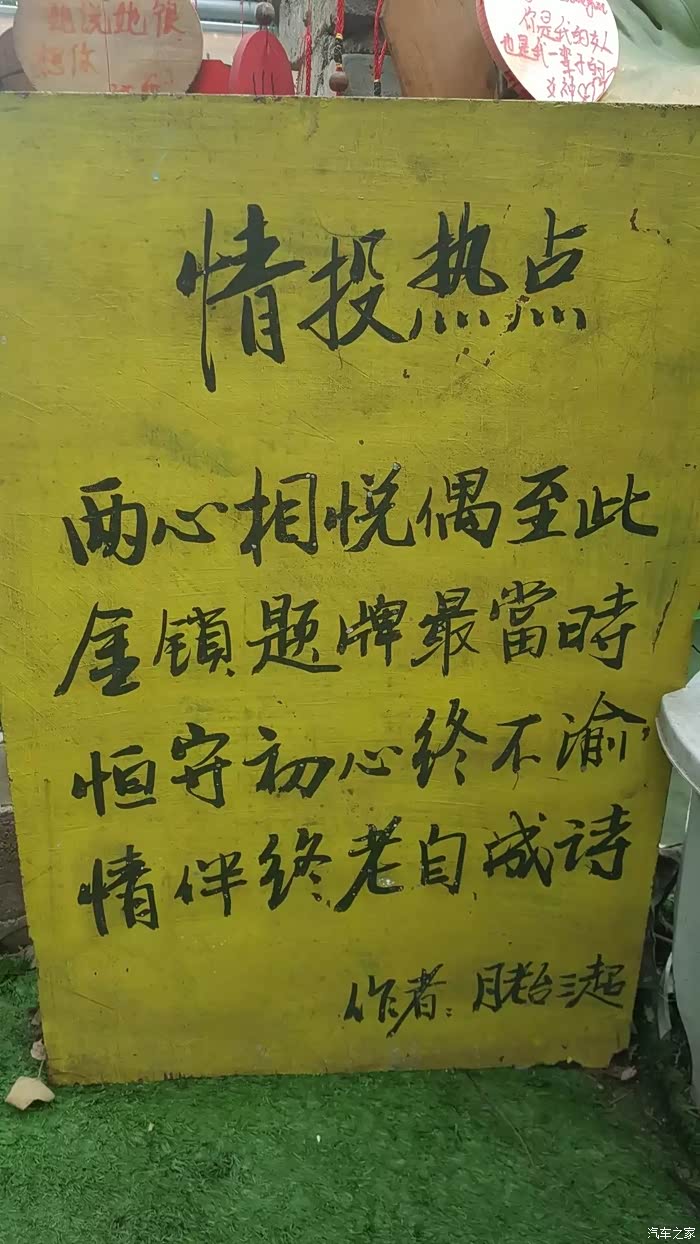 她说她很
想你
你是我的女人
也是我一辈子的
女神
情投热点
两心相悦偶至此
金锁题牌最當時
恒守初心终不渝
情伴终老自成诗
作者:月老台三起
汽车之家